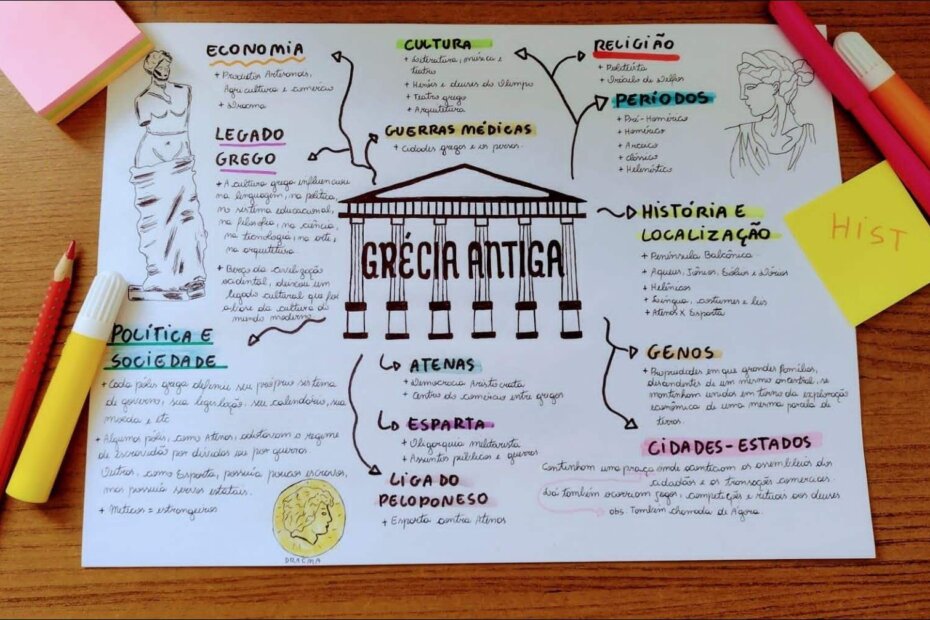 ECONOMIA
+ Produtos Artesanais,
Agricultura e comercio
+ Dracma
LEGADO
GREGO
+ A cultura grega influenciou
na linguagem, na política,
no sistema educacional,
na filosofia, na ciência,
na tecnologia, na arte,
na arquitetura.
+ Berço da civilização
ocidental, deixou um
legado cultural que foi
a base da cultura do
mundo moderno
CULTURA
+ Literatura, música e
teatro
+ Heróis e deuses do Olimpo
+ Teatro grego
+ Arquitetura
GUERRAS MÉDICAS
+ Cidades gregas e os persas.
RELIGIÃO
+ Politeísta
+ Oráculo de Delfos
PERÍODOS
+ Pré-Homérico
+ Homérico
+ Arcaico
+ Clássico
+ Helenístico
GRÉCIA ANTIGA
HISTÓRIA E
LOCALIZAÇÃO
+ Península Balcânica
+ Aqueus, Jônios, Eólios e Dórios
+ Helênicos
+ Língua, costumes e leis
+ Atenas X Esparta
HIST
POLÍTICA E
SOCIEDADE
+ Cada pólis grega definiu seu próprio sistema
de governo, sua legislação, seu calendário, sua
moeda e etc
+ Algumas pólis, como Atenas, adotavam o regime
de Escravidão por dívidas ou por guerras
Outras, como Esparta, possuía poucos escravos,
mas possuía servos estatais.
+ Metecos = estrangeiros
DRACMA
ATENAS
+ Democracia Aristocrata
+ Centro do comércio entre gregos
ESPARTA
+ Oligarquia militarista
+ Assuntos públicos e guerras
LIGA DO
PELOPONESO
+ Esparta contra Atenas
GENOS
+ Propriedades em que grandes famílias,
descendentes de um mesmo ancestral, se
mantinham unidos em torno da exploração
econômica de uma mesma parcela de
terras.
CIDADES-ESTADOS
Continham uma praça onde aconteciam as assembleias dos
cidadãos e as transações comerciais.
Lá também ocorriam jogos, competições e rituais aos deuses
obs. Também chamada de Ágora.